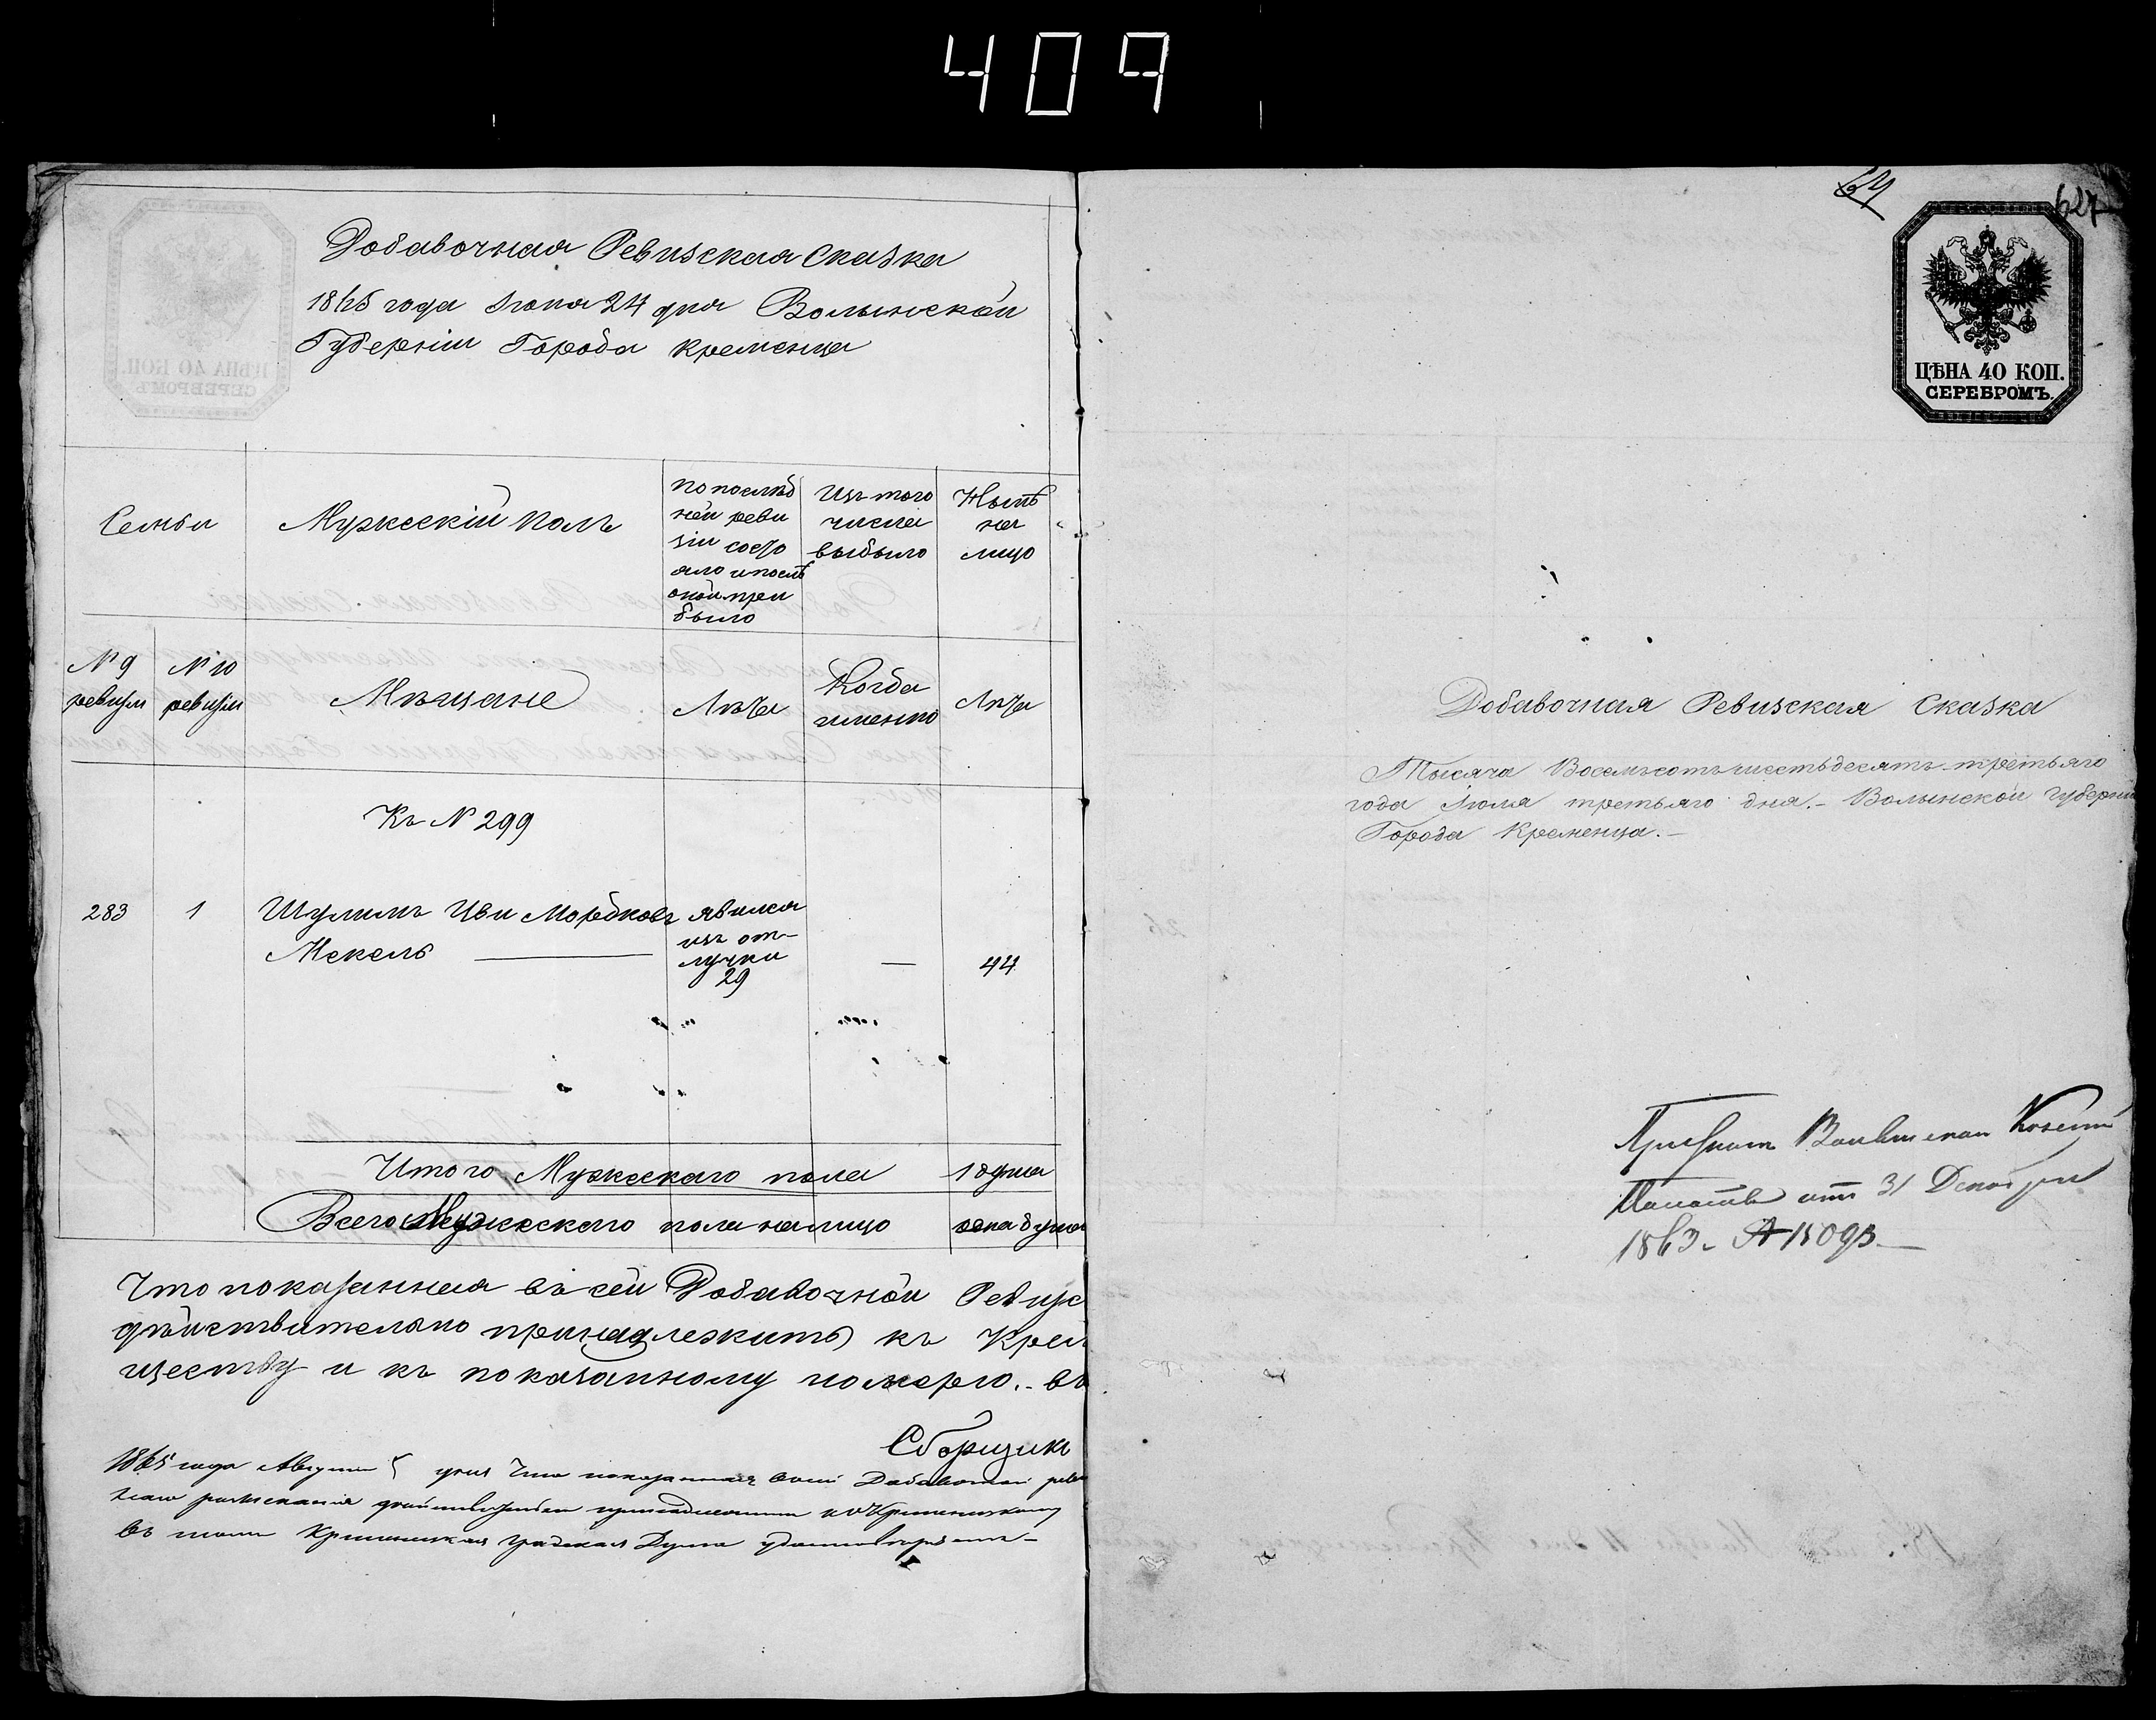 409
Добавочная Ревизская Сказка
1865 года Іюня 24 дня Волынской
Губерніи Города Кременца
Семьи
Мужескій полъ
по послѣд
ней реви
зіи состо
яло и послѣ
оной при
было
Изъ того
числа
выбыло
Нынѣ
на
лицо
№ 9
ревизіи
№ 10
ревизіи
Мѣщане
Лѣта
Когда
именно
Лѣта
Къ № 299
283
1
Шулимъ Цви Мордковъ
Мекель
явился
изъ от-
лучки
29
—
44
Итого Мужескаго пола 1 душа
Всего Мужескаго пола налицо одна душа
Что показанная въ сей Добавочной Ревизс
дѣйствительно принадлежитъ къ Крем
ществу и къ показанному номеру. - въ
Сборщик
1865 года Августа 5 дня Что показанная въ сей Добавочной реви
дѣйствительно принадлежитъ къ Кременецкому
въ томъ Кременецкая градская Дума удостовѣряетъ -
64
627
ЦѢНА 40 КОП.
СЕРЕБРОМЪ.
Добавочная Ревизская Сказка
Тысяча Восемьсотъ шестьдесятъ третьяго
года Іюля третьяго дня. - Волынской Губерніи
Города Кременца. -
Волынской Казенной
Палаты отъ 31 Декабря
1863